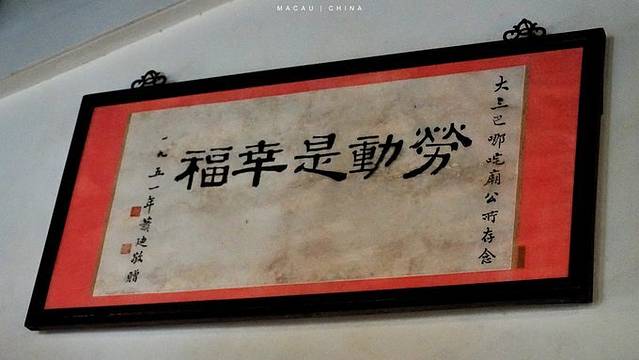 MACAU | CHINA
大三巴哪咤廟公所存念
勞動是幸福
一九五一年黃建敬贈